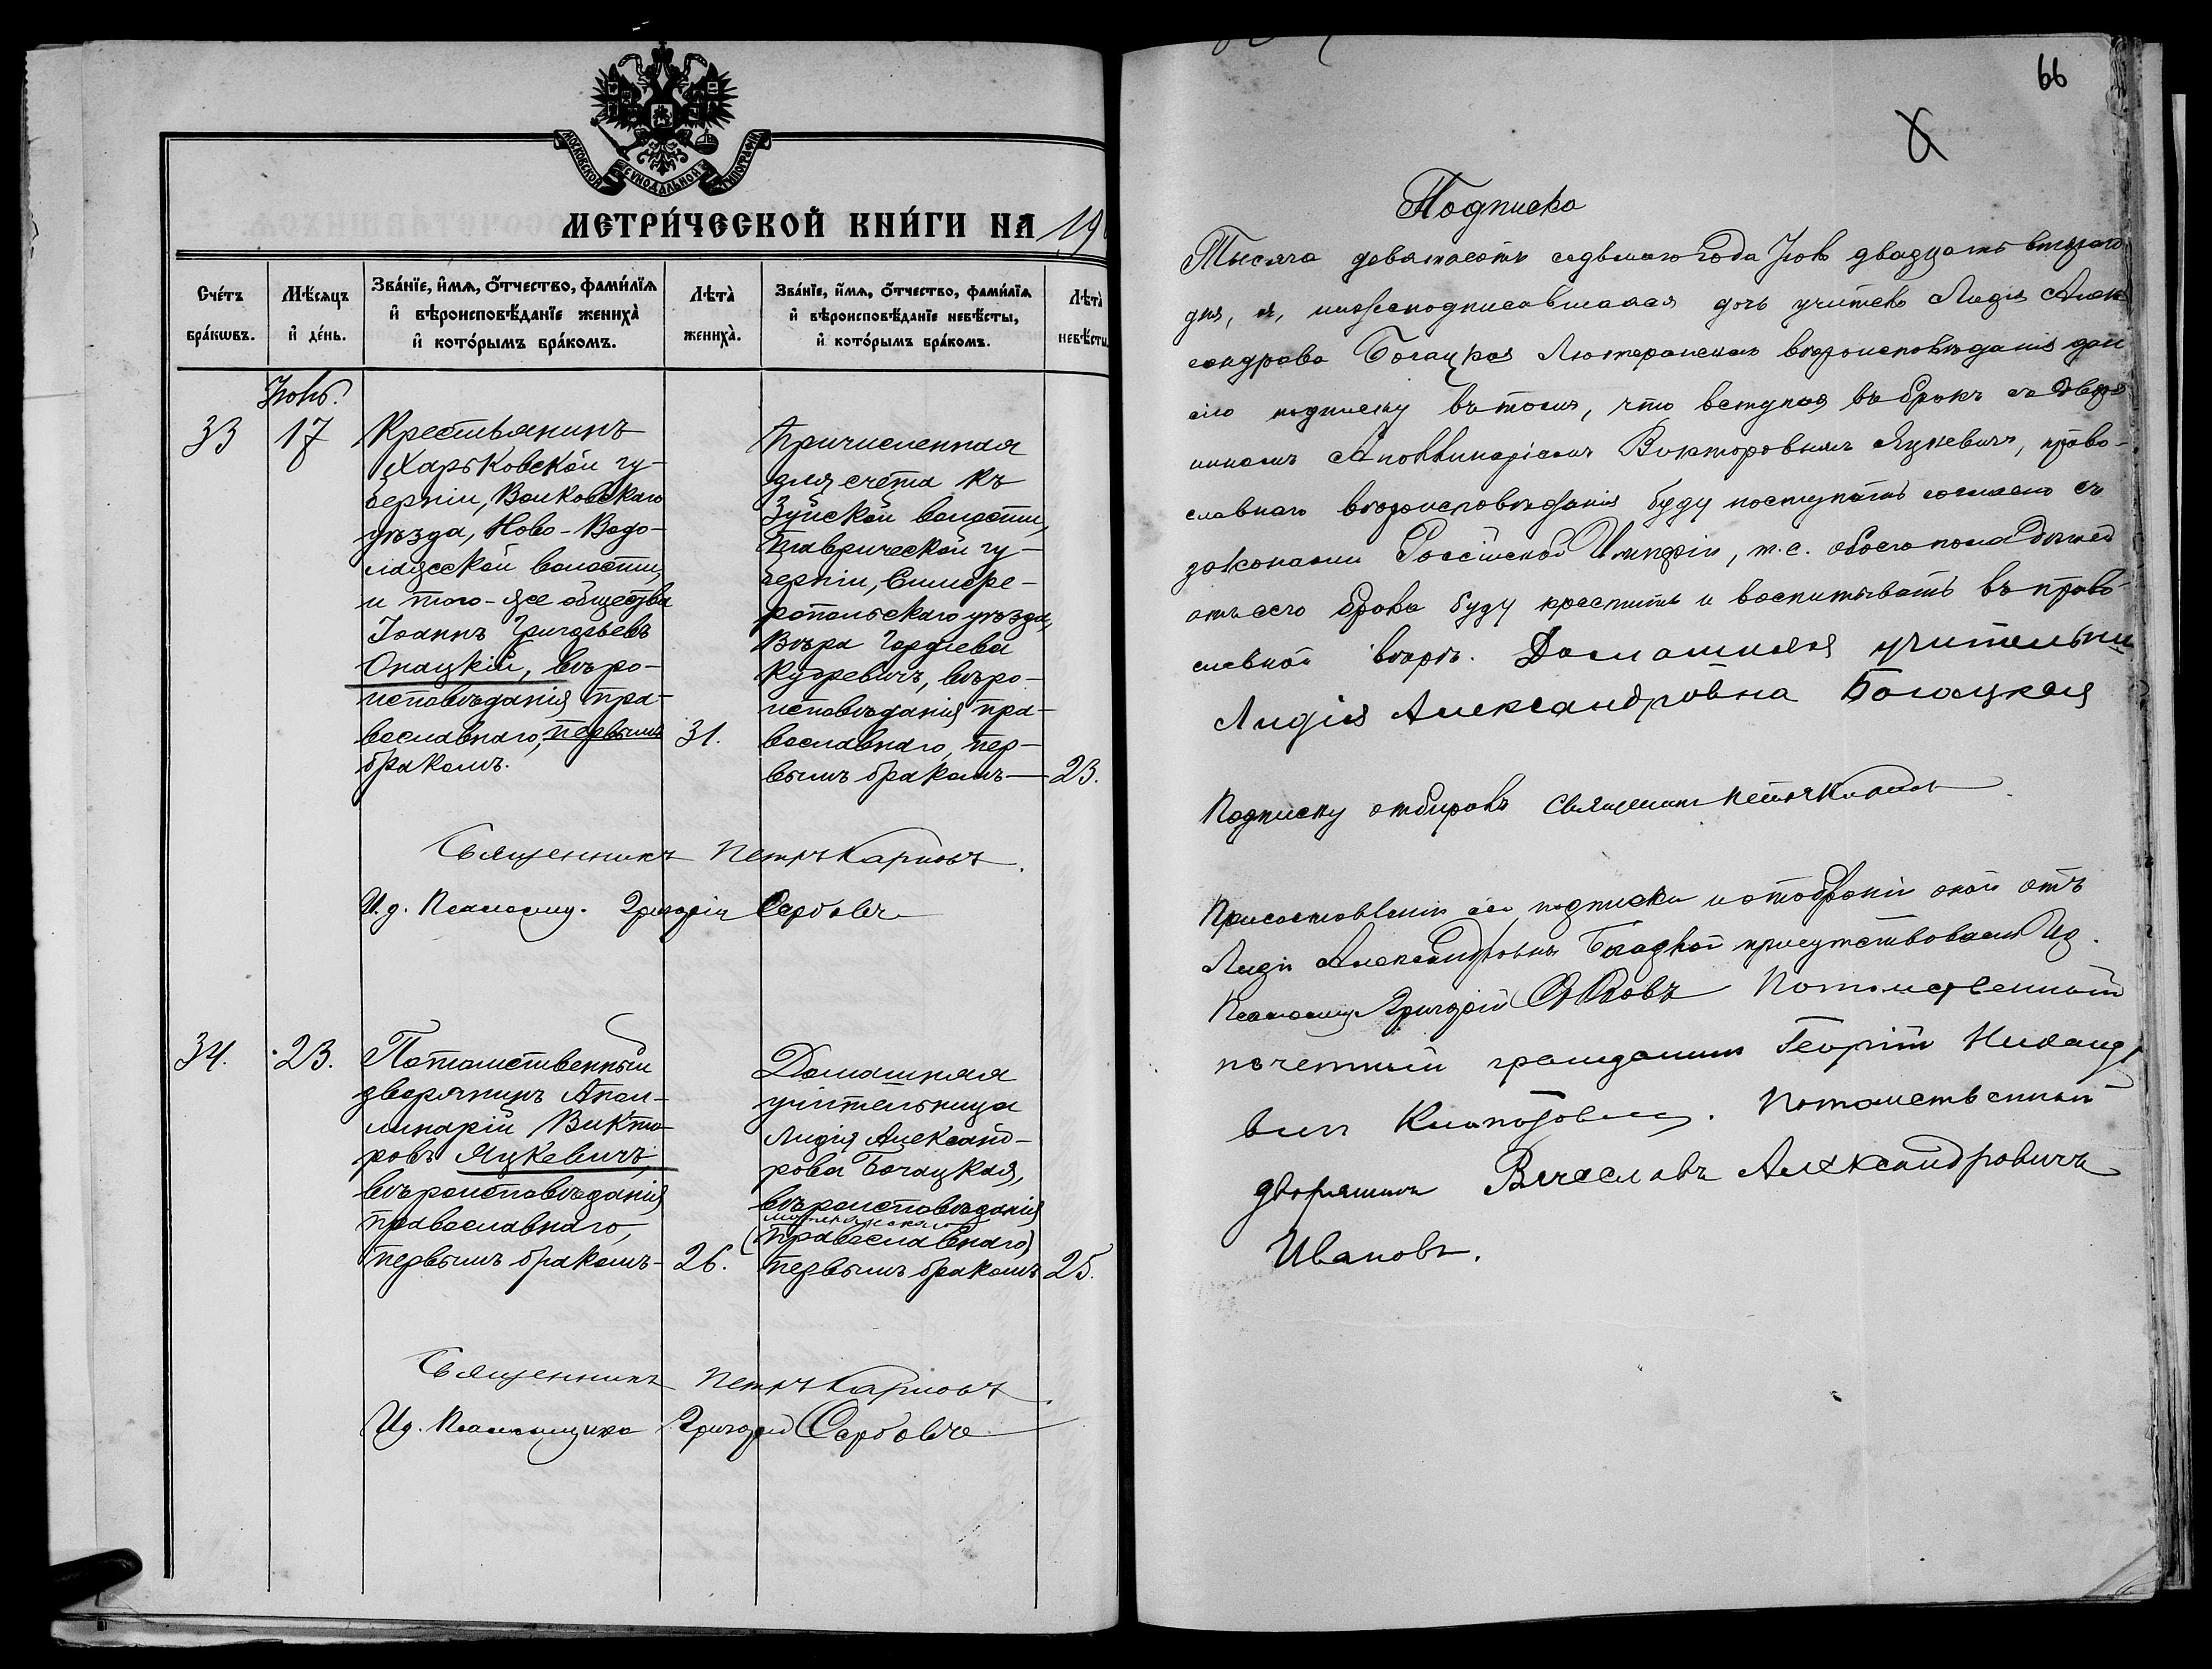 МОСКОВСКОЙ СУНОДАЛЬНОЙ ТИПОГРАФІИ
МЕТРИ́ЧЕСКОЙ КНИ́ГИ НА 19
Сче́тъ бра́кѡвъ.
Мѣ́сяцъ и҆ де́нь.
Зва́нїе, и҆́мя, ѻ҆́тчество, фами́лїя
и҆ вѣроисповѣ́данїе жениха̀
и҆ кото́рымъ бра́комъ.
Лѣта̀ жениха̀.
Зва́нїе, и҆́мя, ѻ҆́тчество, фами́лїя
и҆ вѣроисповѣ́данїе невѣ́сты,
и҆ кото́рымъ бра́комъ.
Лѣта̀ невѣ́сты
Іюнь.
33
17
Крестьянинъ
Харьковской гу-
берніи, Валковскаго
уѣзда, Ново-Водо-
лажской волости,
и того-же общества
Іоаннъ Григорьевъ
Опацкій, вѣро-
исповѣданія пра-
вославнаго, первымъ
бракомъ.
31.
Причисленная
для счета къ
Зуйской волости,
Таврической гу-
берніи, Симфе-
ропольскаго уѣзда,
Вѣра Гордіева
Кудревичъ, вѣро-
исповѣданія пра-
вославнаго, пер-
вымъ бракомъ
23.
Священникъ Петръ Карповъ.
И. д. Псаломщ. Григорій Сербовъ
34.
23.
Потомственный
дворянинъ Апол-
линарій Викто-
ровъ Яцкевичъ,
вѣроисповѣданія
православнаго,
первымъ бракомъ
26.
Домашняя
учительница
Лидія Александ-
рова Богацкая,
вѣроисповѣданія
лютеранскаго
(православнаго)
первымъ бракомъ
25.
Священникъ Петръ Карповъ.
И д. Псаломщика Григорій Сербовъ
66
Подписка
Тысяча девятьсотъ седьмого года Іюня двадцать второго
дня, я, нижеподписавшаяся дочь учителя Лидія Алек
сандрова Богацкая Лютеранскаго вѣроисповѣданія даю
сію подписку въ томъ, что вступая въ бракъ съ Дворя
ниномъ Аполлинаріемъ Викторовымъ Яцкевичъ, право-
славнаго вѣроисповѣданія буду поступать согласно съ
законами Россійской Имперіи, т.е. обоего пола дѣтей
отъ сего брака буду крестить и воспитывать въ право-
славной вѣрѣ. Домашняя учительни
Лидія Александровна Богацкая
Подписку отбиралъ Священникъ Петръ Карповъ.
При составленіи сей подписки и отобраніи оной отъ
Лидіи Александровны Богацкой присутствовали И д.
Псаломщ. Григорій Сербовъ Потомственный
почетный гражданинъ Георгій Никанд
дворянинъ Вячеславъ Александровичъ
Ивановъ.